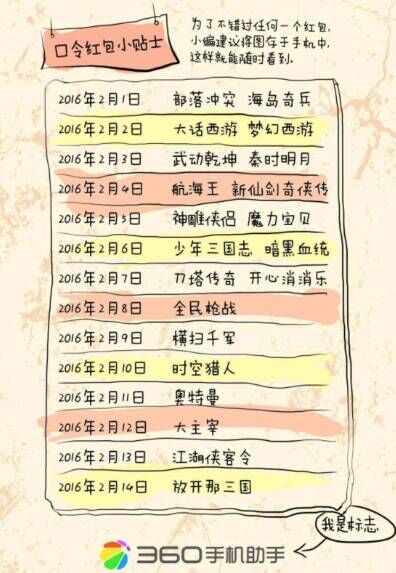 口令红包小贴士
为了不错过任何一个红包,
小编建议将图存于手机中,
这样就能随时看到.
2016年2月1日 部落冲突 海岛奇兵
2016年2月2日 大话西游 梦幻西游
2016年2月3日 武动乾坤 秦时明月
2016年2月4日 航海王 新仙剑奇侠传
2016年2月5日 神雕侠侣 魔力宝贝
2016年2月6日 少年三国志 暗黑血统
2016年2月7日 刀塔传奇 开心消消乐
2016年2月8日 全民枪战
2016年2月9日 横扫千军
2016年2月10日 时空猎人
2016年2月11日 奥特曼
2016年2月12日 大主宰
2016年2月13日 江湖侠客令
2016年2月14日 放开那三国
我是标志
360手机助手